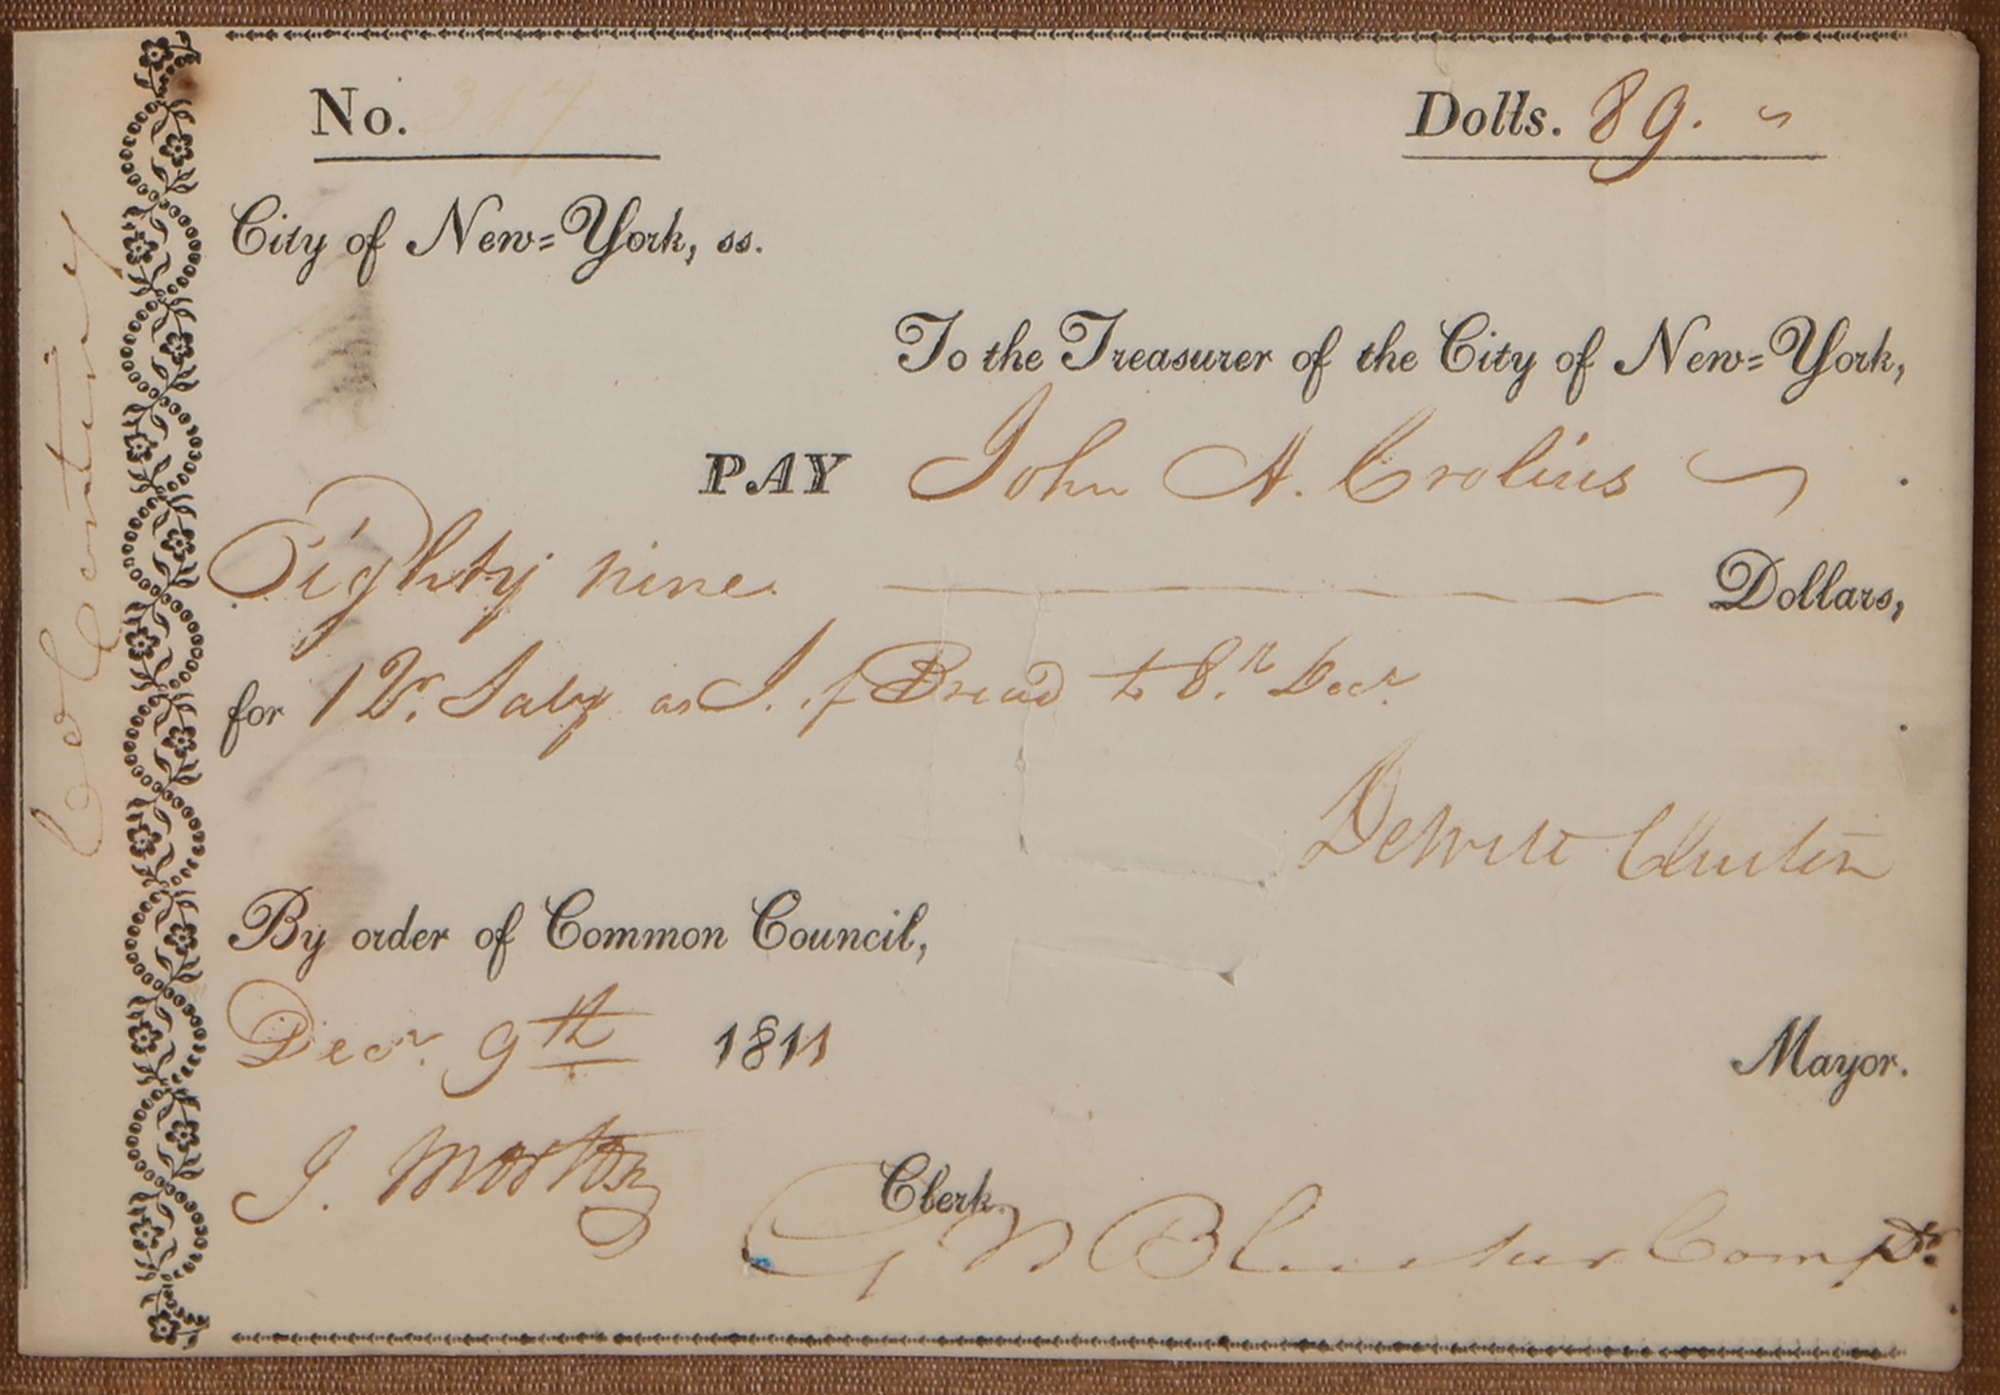 No. 317
Dolls. 89.
City of New=York, ss.
To the Treasurer of the City of New=York,
PAY John A. Crolius
Eighty nine Dollars,
for 1 Qr. Saly as I. of Bread to 8.th Decr.
Dewitt Clinton
By order of Common Council,
Decr. 9th 1811
Mayor.
J. Morton
Clerk.
G N Bleecker Compr.